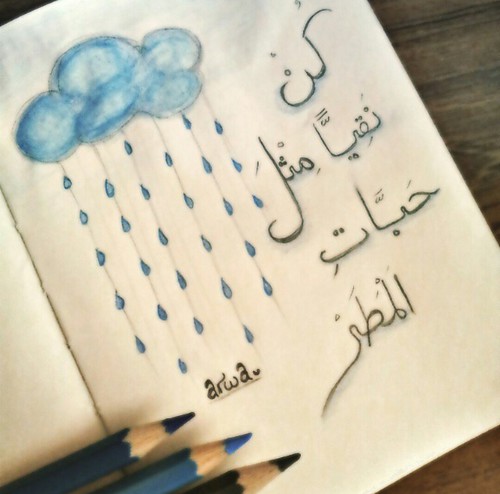 كُنْ
نَقِيًّا مِثْلَ
حَبَّاتِ
المَطَرْ
arwa